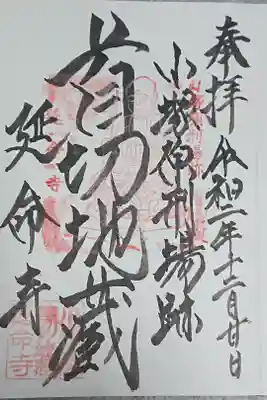 奉拝 令和二年十二月廿日
小塚原刑場跡
首切地蔵
延命寺